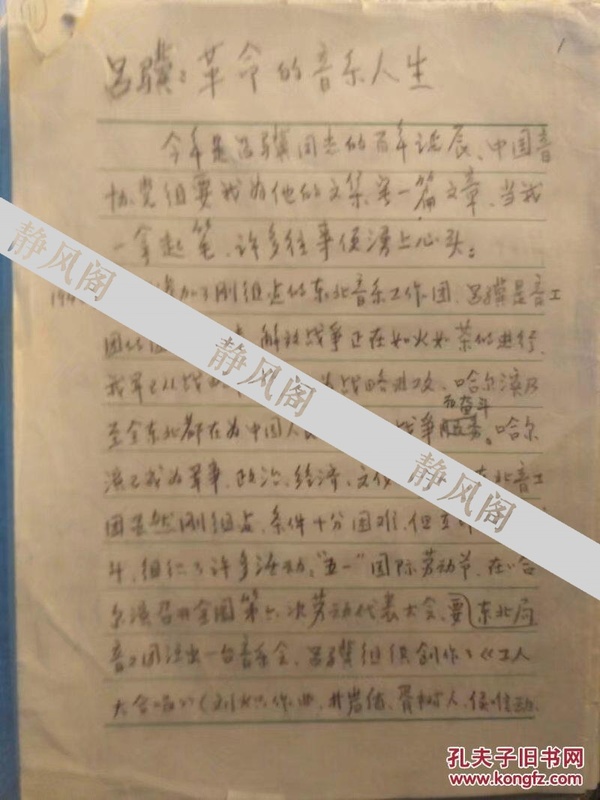 吕骥：革命的音乐人生
今年是吕骥同志的百年诞辰、中国音
协党组要我为他的文集写一篇文章，当我
一拿起笔，许多往事便涌上心头：
参加了刚组点的东北音乐工作团，吕骥是音工
团的 解放战争正在如火如荼的进行，
我军已从战略 战略进攻、哈尔滨及
至全东北都在为中国人民 战争
而奋斗
。哈尔
滨已成为军事、政治、经济、文化 东北音工
团虽然刚组点，条件十分困难，但
组织了许多活动，"五一"国际劳动节，在哈
尔滨召开全国第六次劳动代表大会，要东北局
音工团演出一台音乐会，吕骥组织创作了《工人
大合唱》（ 作曲，井岩盾、胥树人、侯唯动
静风阁
静风阁
静风阁
孔夫子旧书网
www.kongfz.com